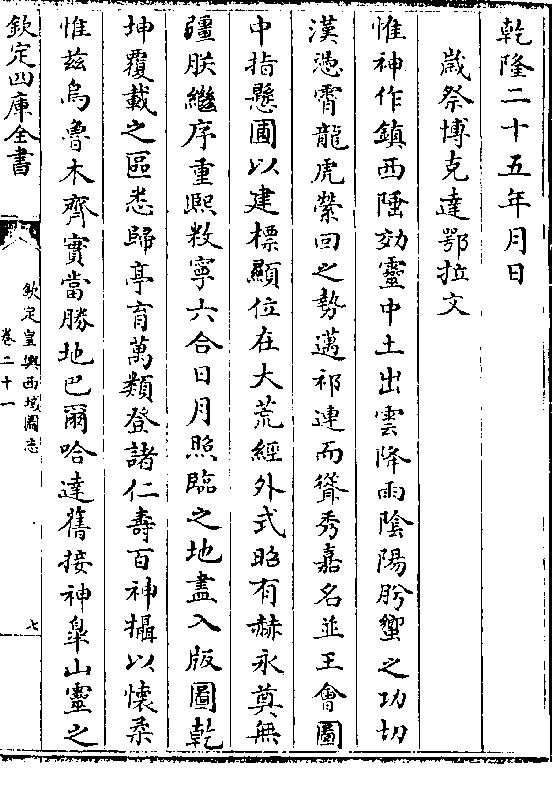 乾隆二十五年月日
歳祭博克達鄂拉文
惟神作鎮西陲効靈中土出雲降雨陰陽肸蠁之功切
漢憑霄龍虎縈回之勢邁祁連而聳秀嘉名並王會圖
中指懸圃以建標顯位在大荒經外式昭有赫永奠無
疆朕繼序重熙敉寧六合日月照臨之地盡入版圖乾
坤覆載之區悉歸亭育萬類登諸仁壽百神攝以懷柔
惟兹烏魯木齊實當勝地巴爾哈達舊接神臯山靈之
欽定四庫全書
欽定皇輿西域圖志
卷二十一
七